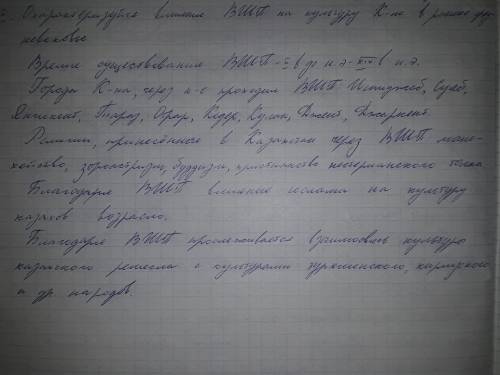 Охарактеризуйте влияние ВШП на культуру К-на в раннее сред
невековье
Время существования ВШП - II в до н.э - XIV в н.э.
Города К-на, через к-е проходил ВШП: Испиджаб, Суяб,
Янгикент, Тараз, Отрар, Кедер, Кулан, Дженд,
Религии, принесённые в Казахстан через ВШП: мани-
хейство, зороастризм, буддизм, христианство несторианского толка
Благодаря ВШП влияние ислама на культуру
казахов возросло.
Благодаря ВШП прослеживается взаимосвязь культуры
казахского ремесла с культурами туркменского, киргизского
и др народов.